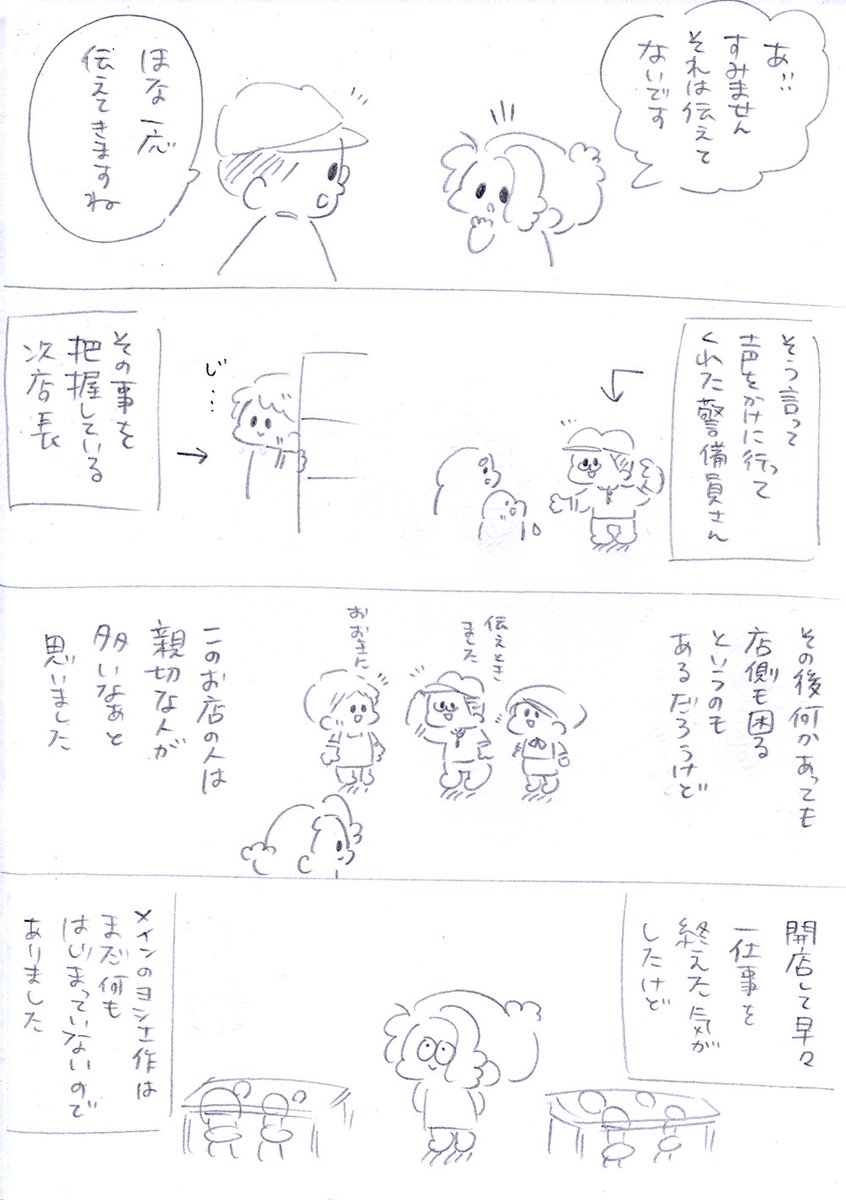 あ…
すみません
それは伝えて
ないです
ほな一応
伝えてきますね
そう言って
声をかけに行って
くれた警備員さん
じ…
その事を
把握している
次店長
その後何かあっても
店側も困る
というのも
あるだろうけど
伝えとき
ました
おおきに
このお店の人は
親切な人が
多いなぁと
思いました
開店して早々
一仕事を
終えた気が
したけど
メインのヨシ工作は
まだ何も
はじまっていないので
ありました